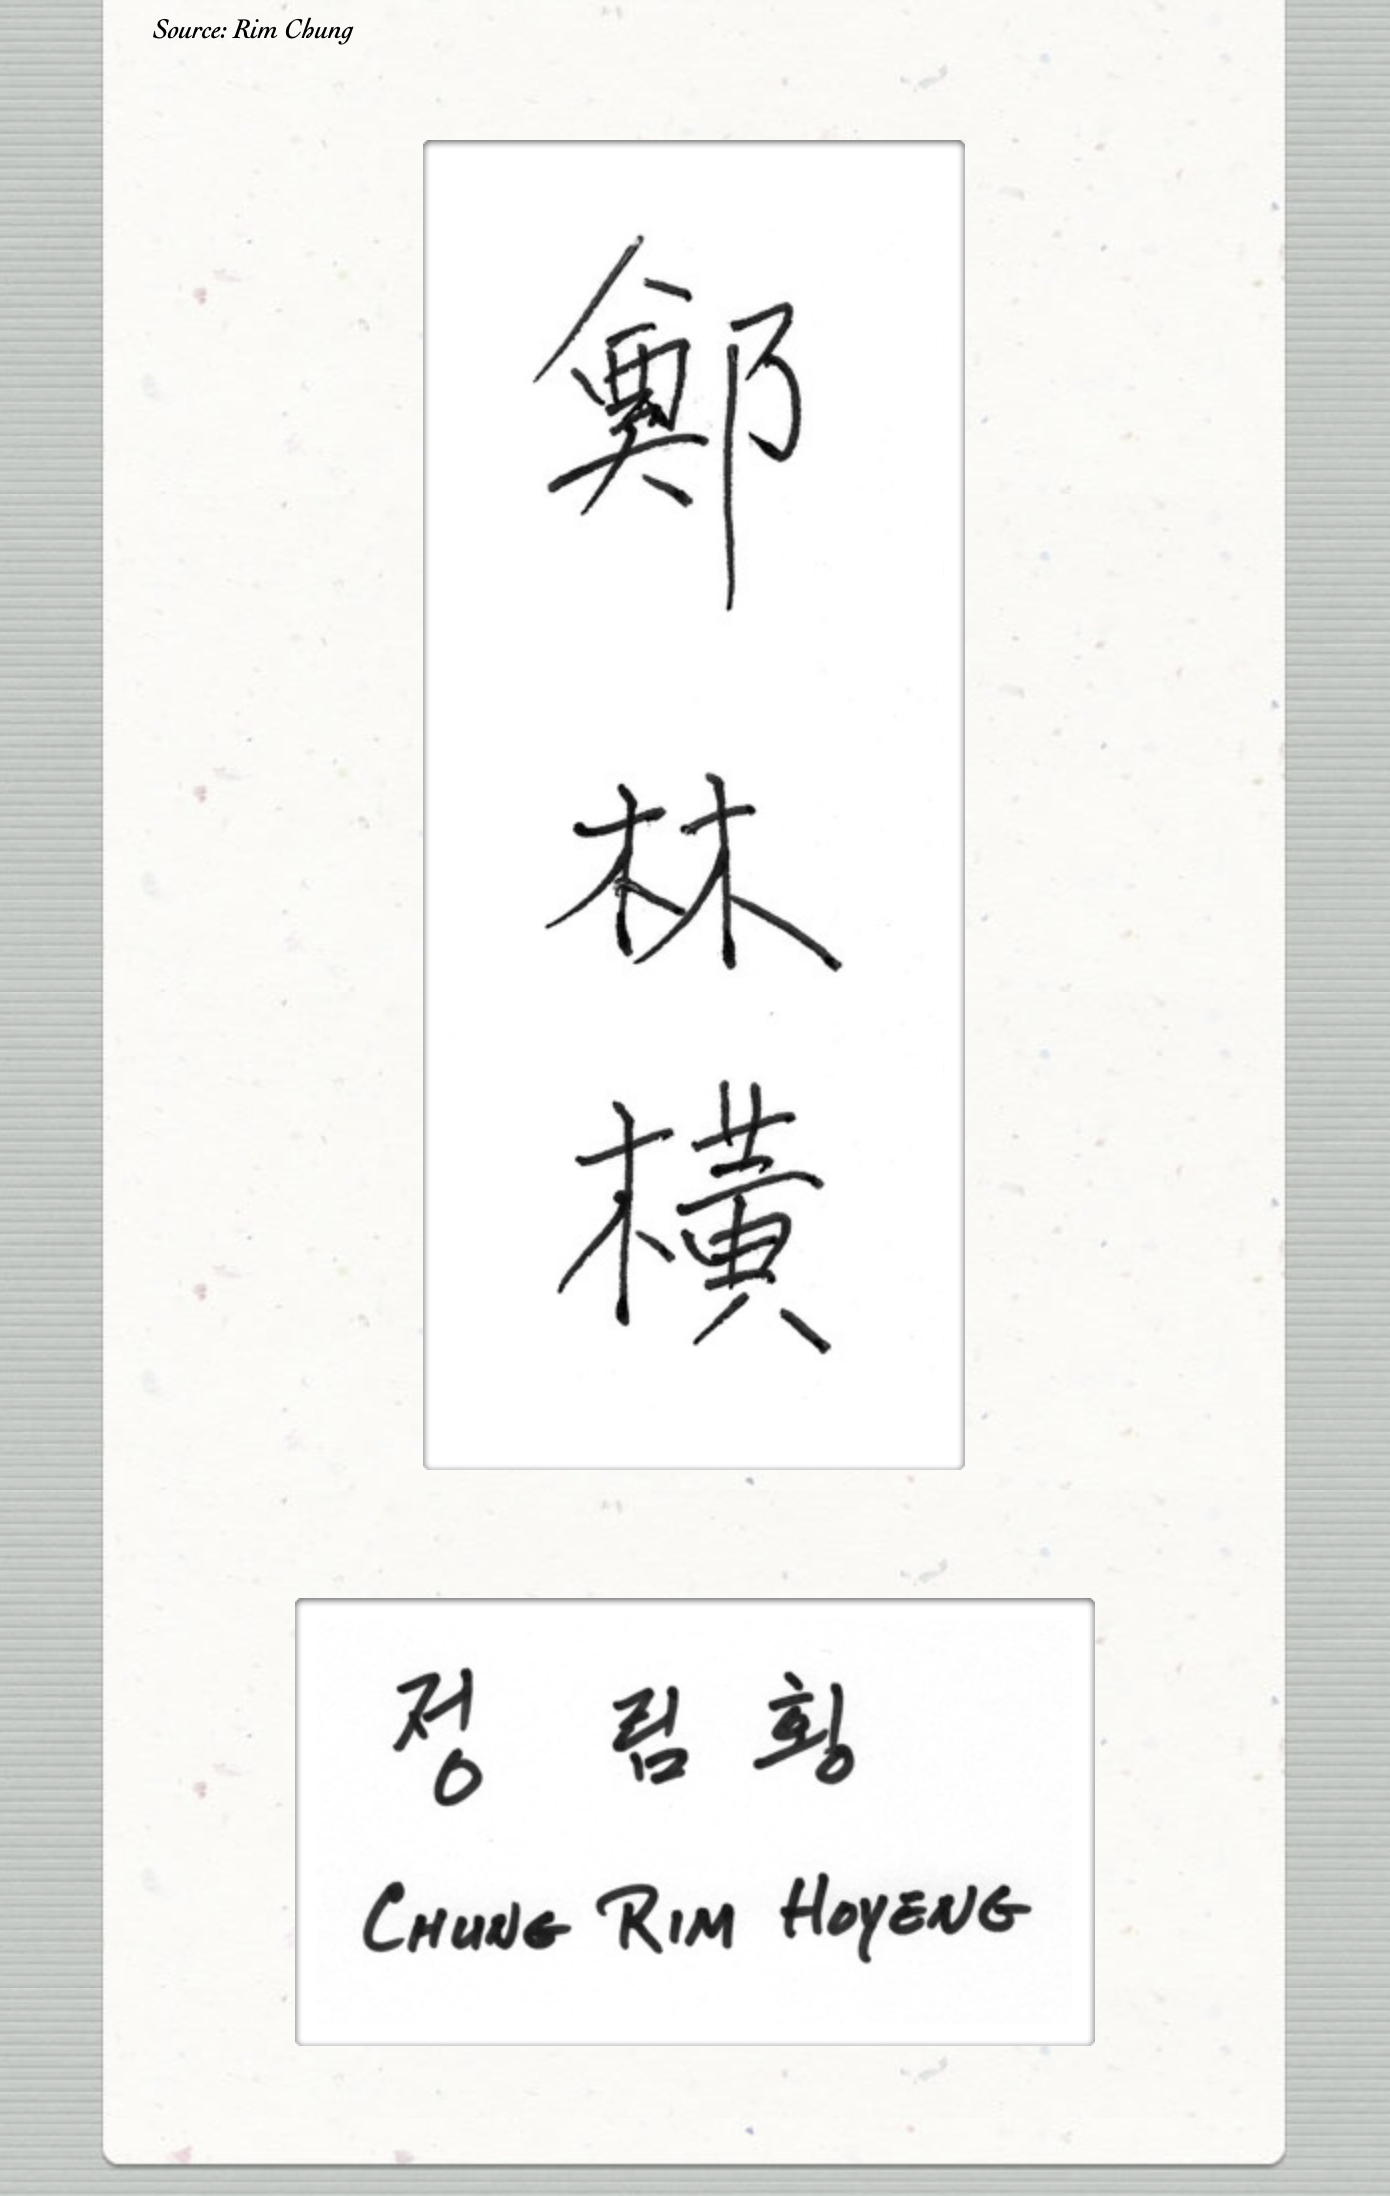 Source: Rim Chung
鄭
林
橫
정 림 횡
CHUNG RIM HOYENG